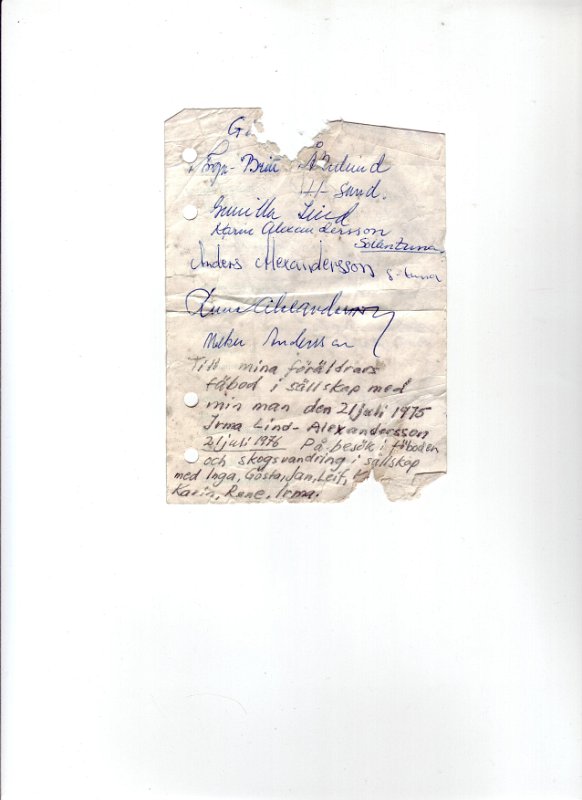 G
Inga-Britt Åkerlund
H-sand.
Gunilla Lind
Karin Alexandersson
Sollentuna
Anders Alexandersson S-tuna
Rune Alexandersson
Andersson
Till mina föräldrars
fäbod i sällskap med
min man den 21 juli 1975
Irma Lind-Alexandersson
21 juli 1976 På besök i fäboden
och skogsvandring i sällskap
med Inga, Gösta, Jan, Leif,
Karin, Rune, Irma.